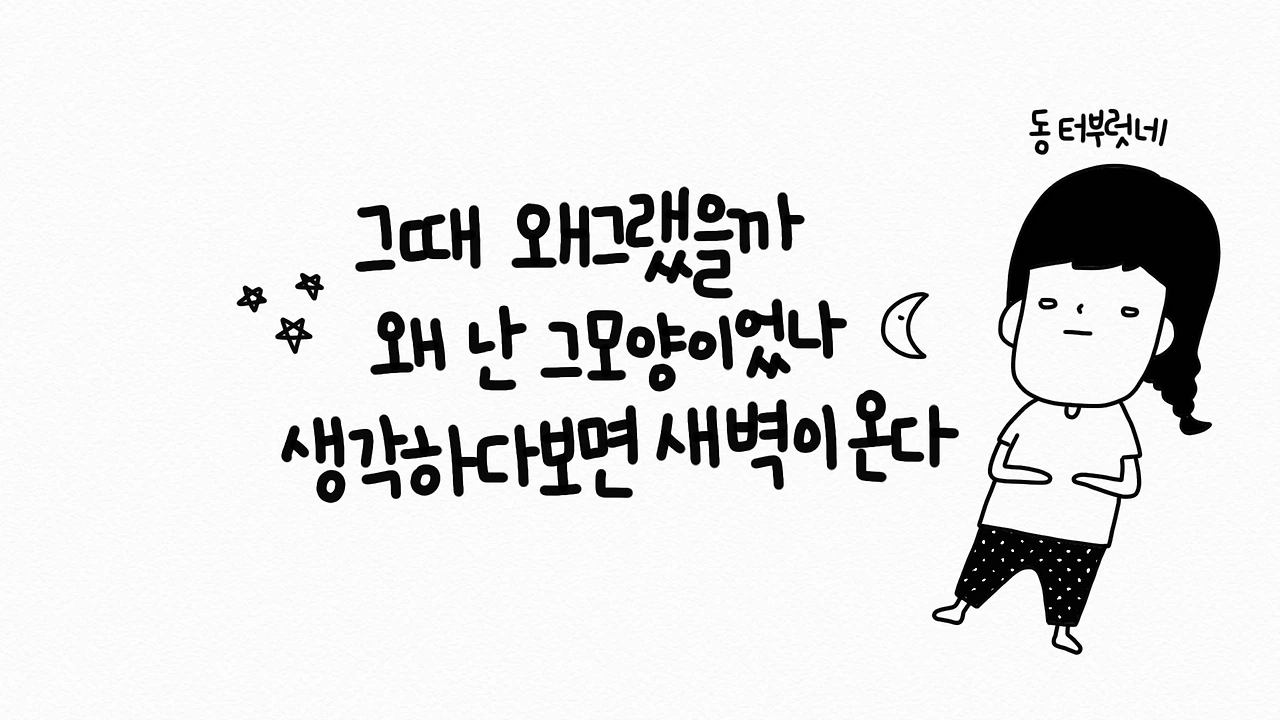 동 터부렀네
그때 왜그랬을까
왜 난 그모양이었나
생각하다보면 새벽이 온다